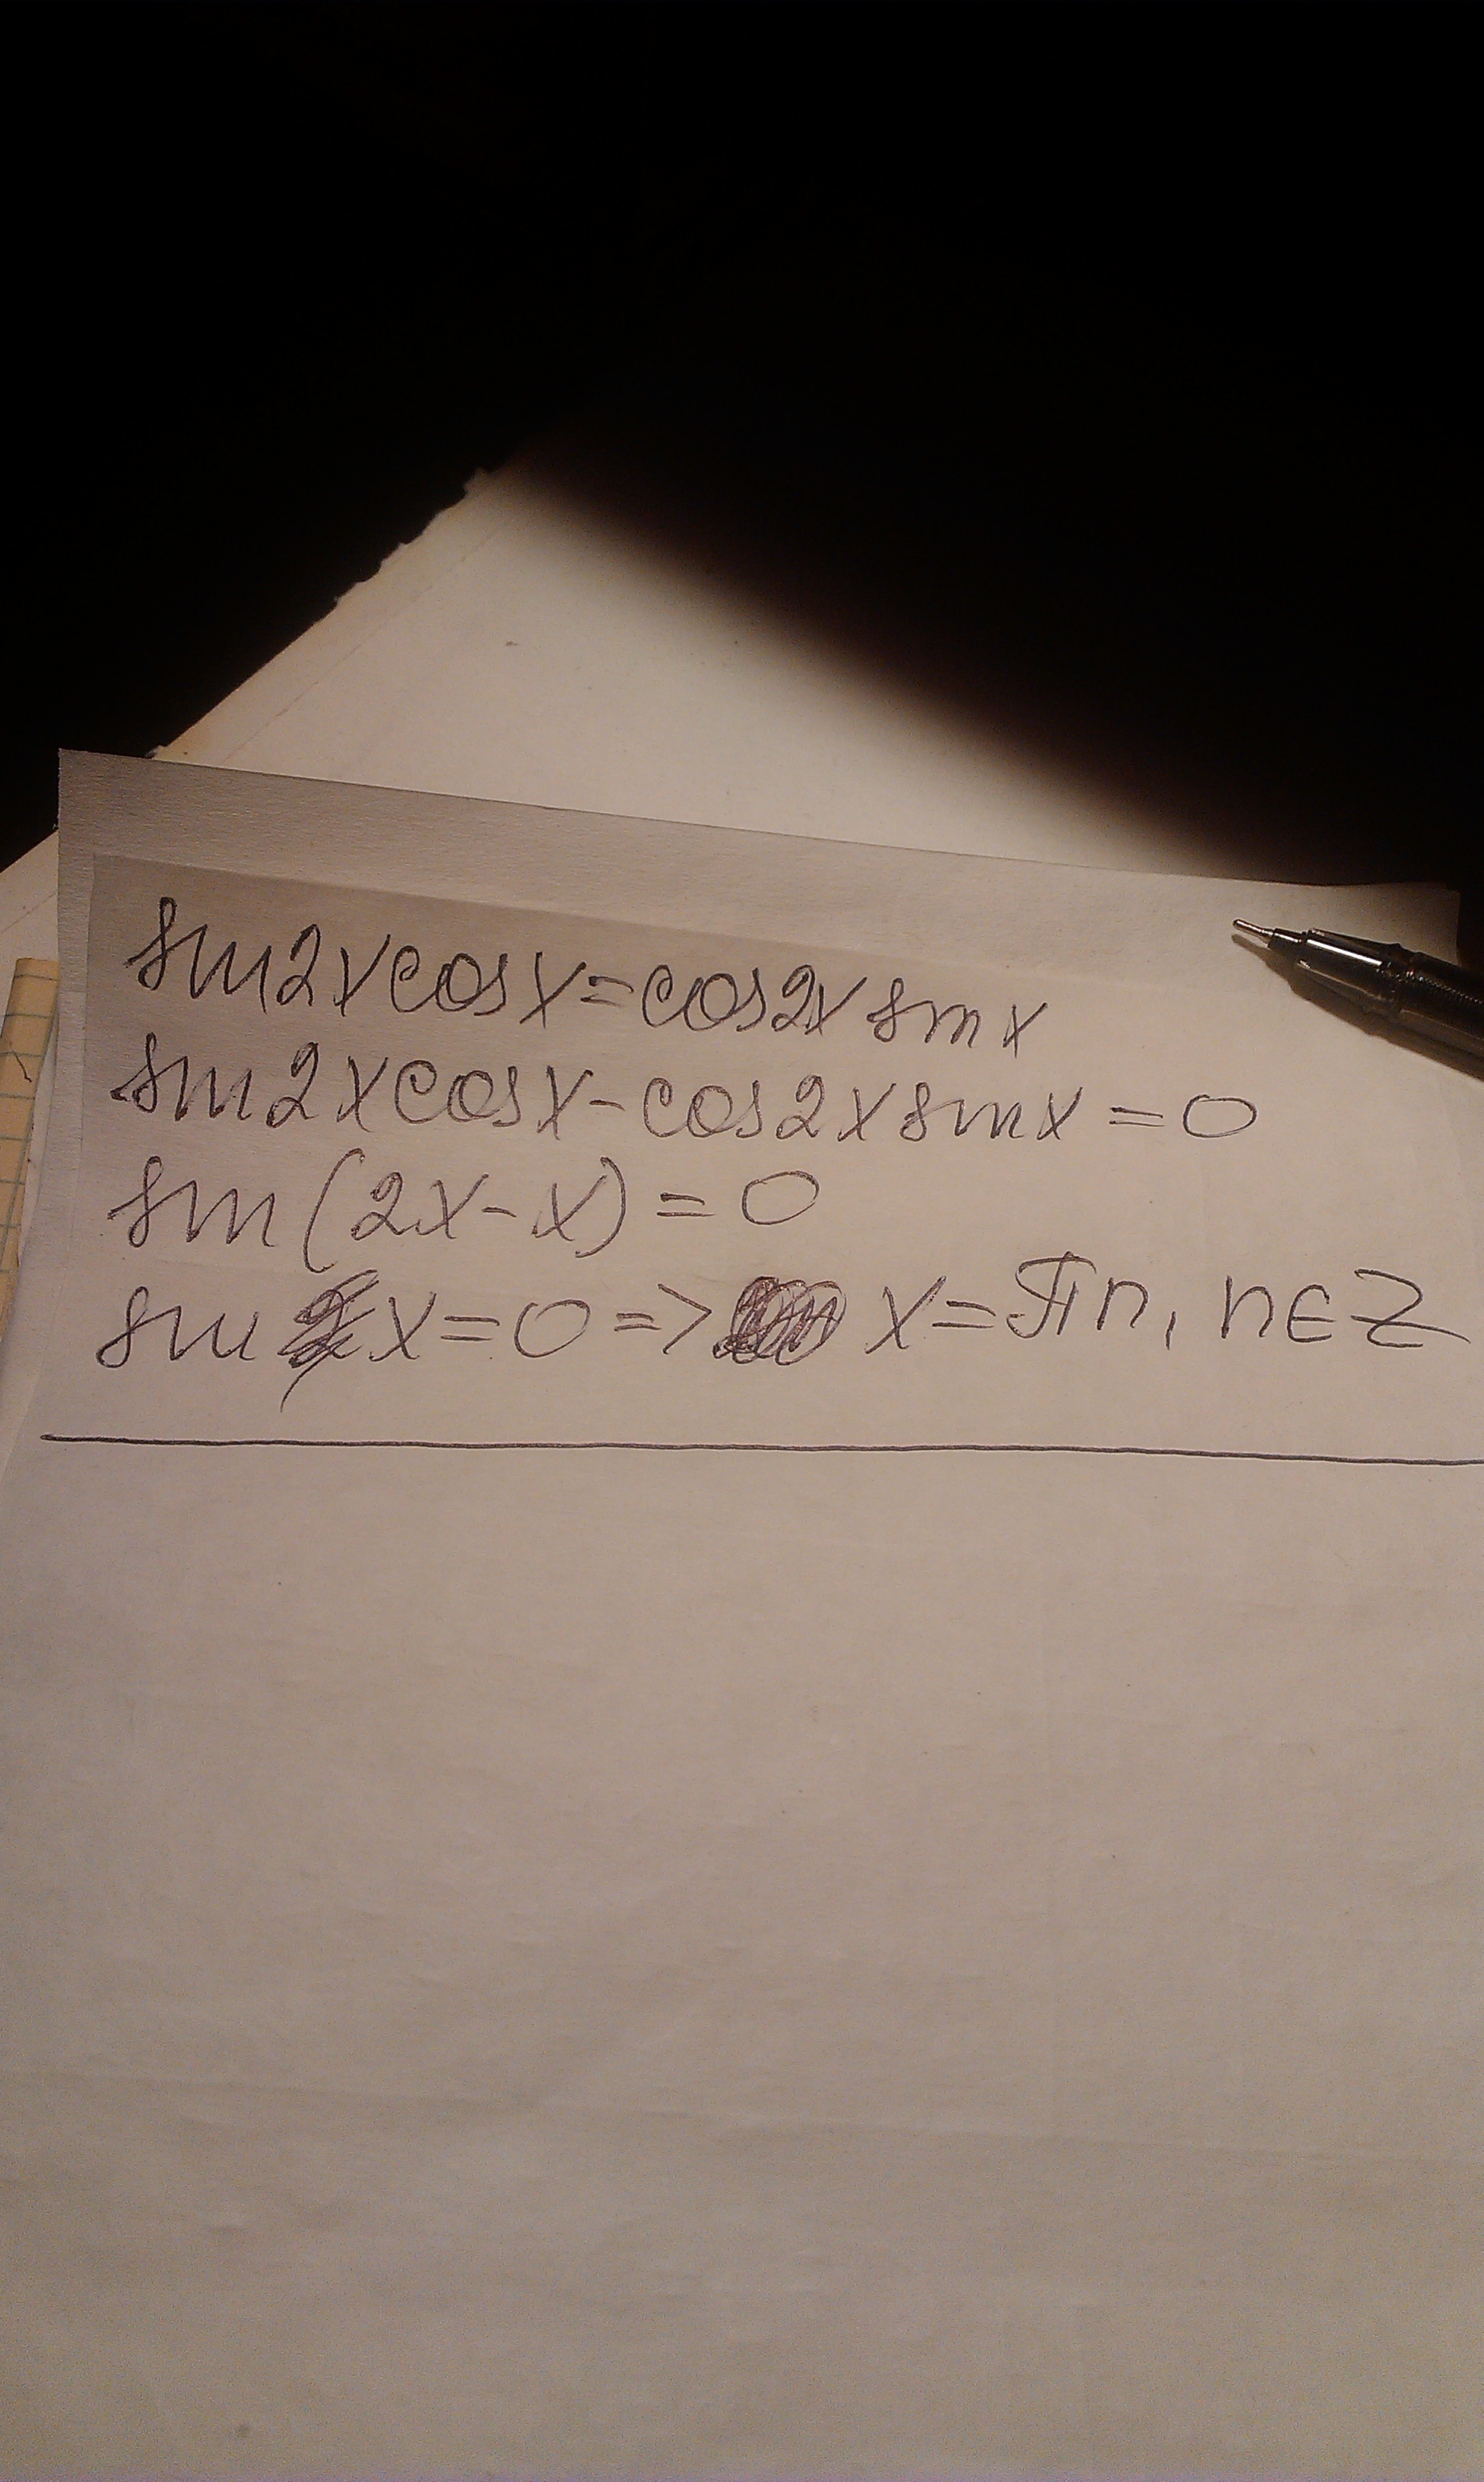 sin2xcosx=cos2xsinx
sin2xcosx-cos2xsinx=0
sin(2x-x)=0
sin x=0=> x=πn, n∈Z